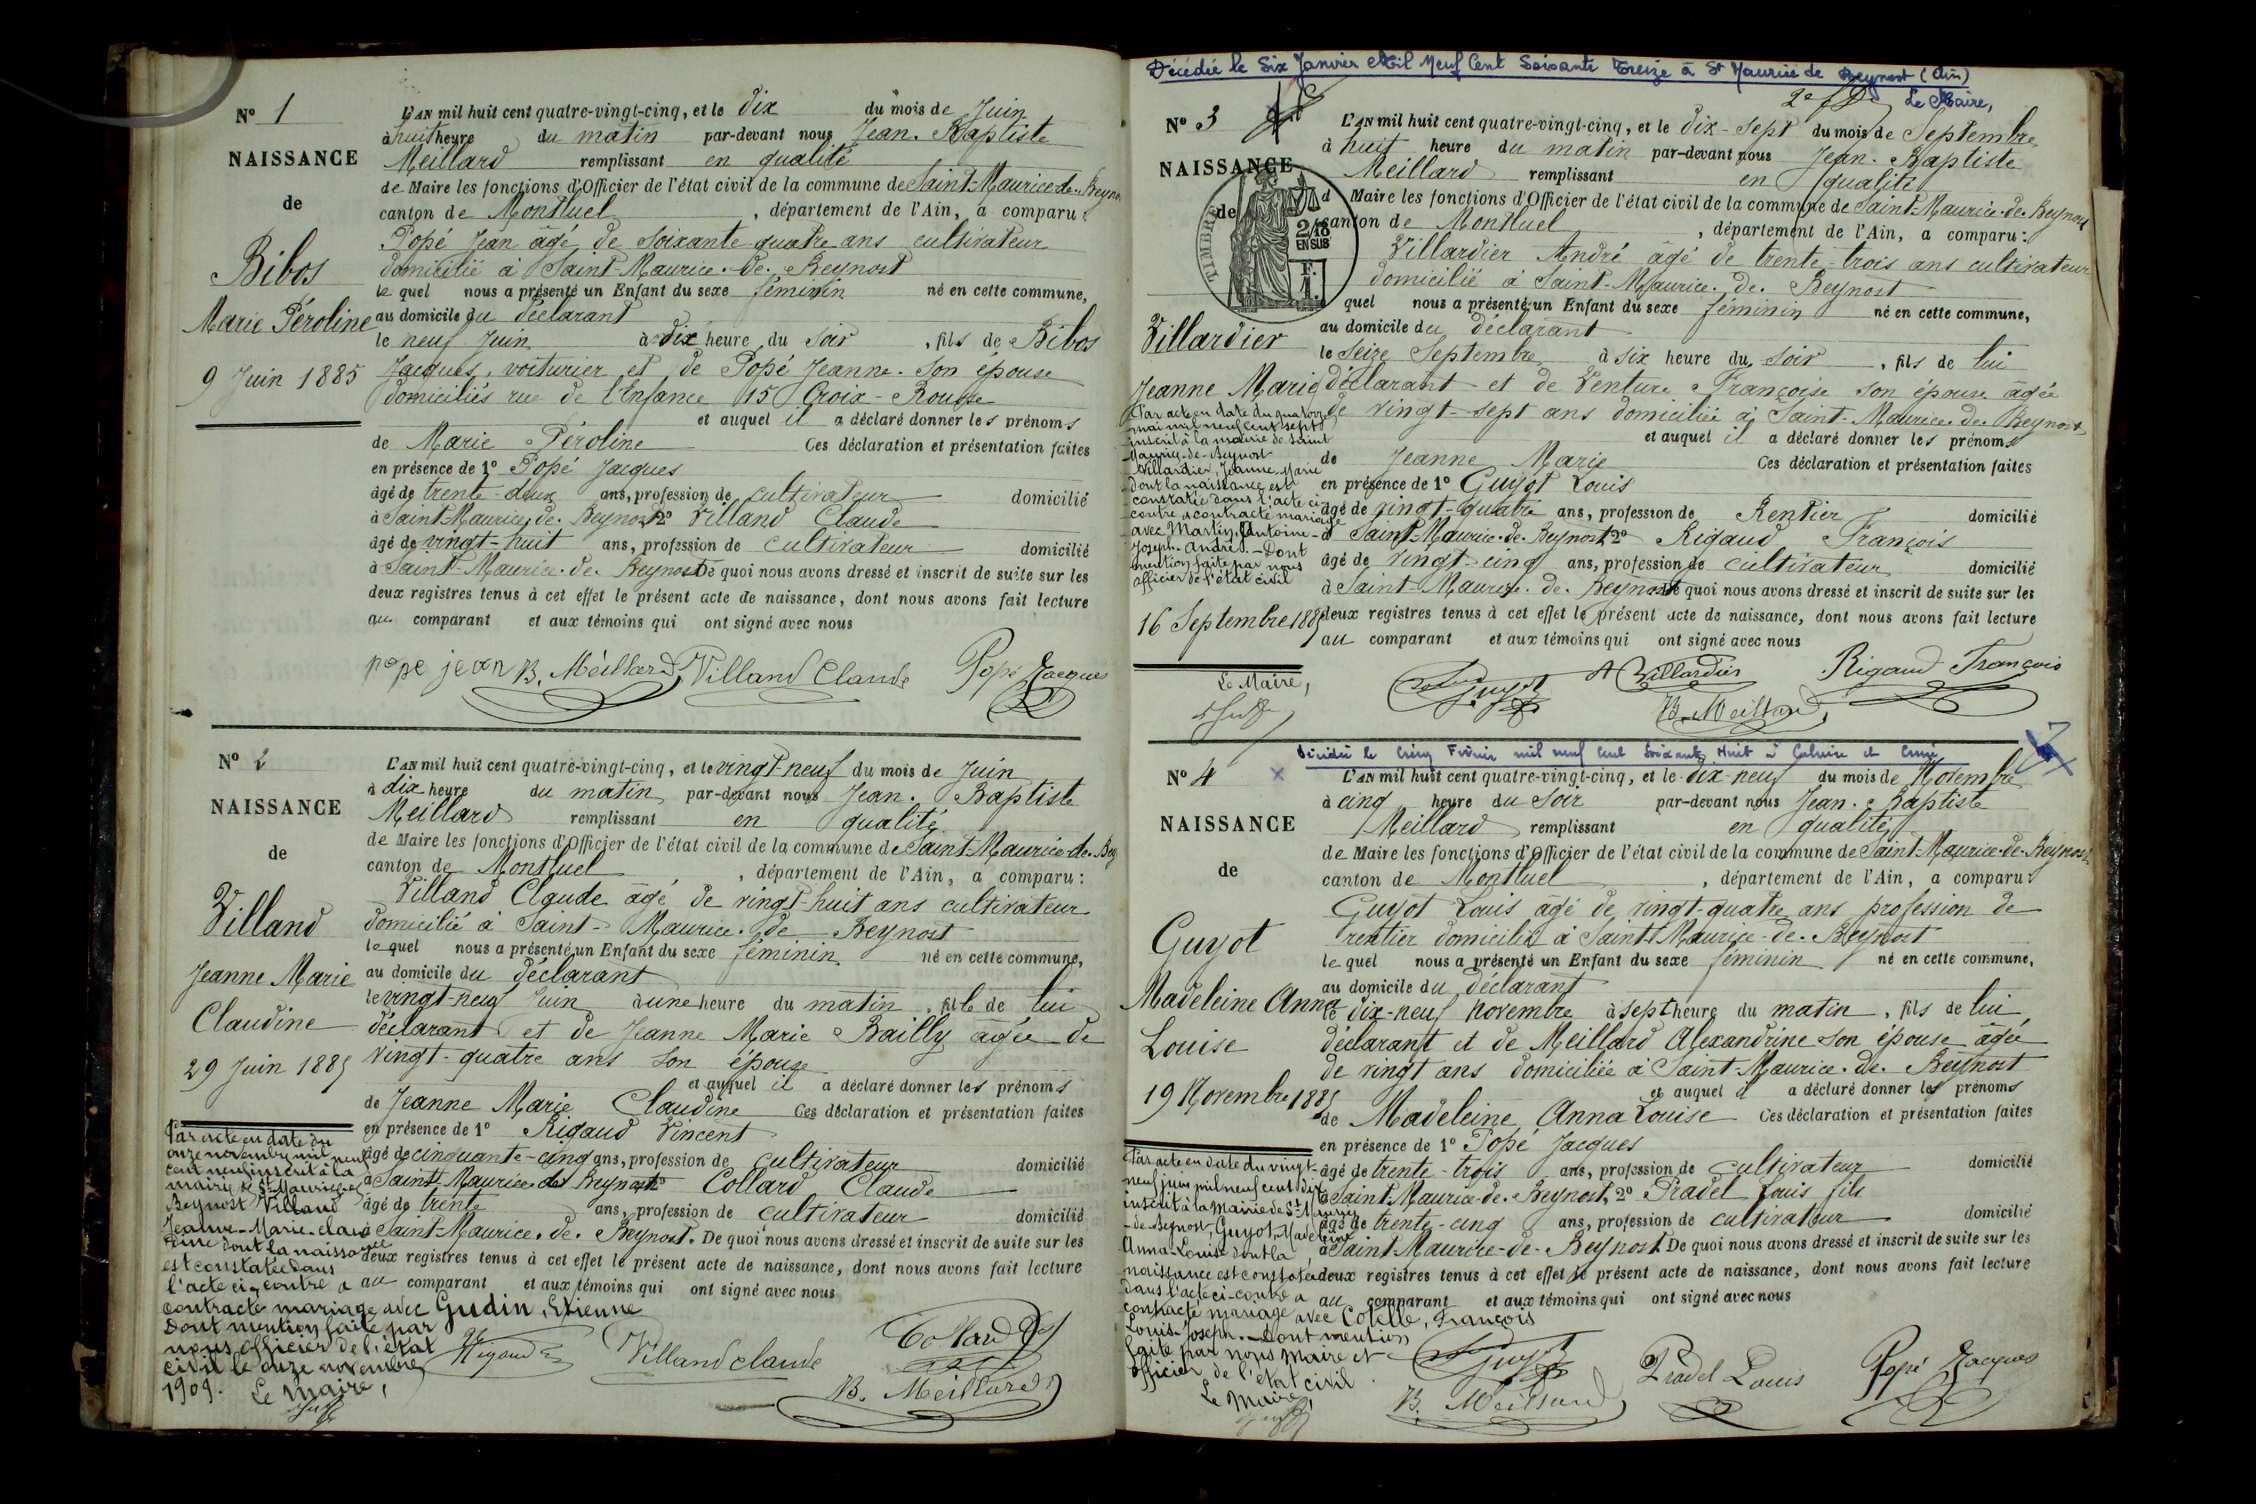 Nº 1
NAISSANCE
de
Bibos
Marie Péroline
9 Juin 1885
L'AN mil huit cent quatre-vingt-cinq, et le dix du mois de Juin
à huit heure du matin par-devant nous Jean-Baptiste
Meillard remplissant en qualité
de Maire les fonctions d'Officier de l'état civil de la commune de Saint-Maurice-de-Beyno
canton de Montluel, département de l'Ain, a comparu :
Popé Jean âgé de soixante-quatre ans cultivateur
domicilié à Saint-Maurice-de-Beynost
le quel nous a présenté un Enfant du sexe féminin né en cette commune,
au domicile du déclarant
le neuf Juin à dix heure du soir, fils de Bibos
Jacques, voiturier et de Popé Jeanne. Son épouse
domiciliés rue de l'Enfance 15 Croix-Rousse
et auquel il a déclaré donner les prénoms
de Marie Péroline Ces déclaration et présentation faites
en présence de 1º Popé Jacques
âgé de trente-deux ans, profession de cultivateur domicilié
à Saint-Maurice-de-Beynost 2º Villand Claude
âgé de vingt-huit ans, profession de cultivateur domicilié
à Saint-Maurice-de-Beynost De quoi nous avons dressé et inscrit de suite sur les
deux registres tenus à cet effet le présent acte de naissance, dont nous avons fait lecture
au comparant et aux témoins qui ont signé avec nous
pope jean B. Meillard Villand Claude Popé Jacques
Nº 2
NAISSANCE
de
Villand
Jeanne Marie
Claudine
29 Juin 1885
L'AN mil huit cent quatre-vingt-cinq, et le vingt-neuf du mois de Juin
à dix heure du matin par-devant nous Jean-Baptiste
Meillard remplissant en qualité
de Maire les fonctions d'Officier de l'état civil de la commune de Saint-Maurice-de-Bey
canton de Montluel, département de l'Ain, a comparu :
Villand Claude âgé de vingt-huit ans cultivateur
domicilié à Saint-Maurice-de-Beynost
le quel nous a présenté un Enfant du sexe féminin né en cette commune,
au domicile du déclarant
le vingt-neuf Juin à une heure du matin, fille de lui
déclarant et de Jeanne Marie Bailly agée de
vingt-quatre ans son épouse
et auquel il a déclaré donner les prénoms
de Jeanne Marie Claudine Ces déclaration et présentation faites
en présence de 1º Rigaud Vincent
âgé de cinquante-cinq ans, profession de cultivateur domicilié
à Saint-Maurice-de-Beynost 2º Collard Claude
âgé de trente ans, profession de cultivateur domicilié
à Saint-Maurice-de-Beynost. De quoi nous avons dressé et inscrit de suite sur les
deux registres tenus à cet effet le présent acte de naissance, dont nous avons fait lecture
au comparant et aux témoins qui ont signé avec nous
Par acte en date du
onze novembre mil neuf
cent neuf inscrit à la
mairie de St Maurice-de
Beynost Villand
Jeanne-Marie-Clau
dine dont la naissance
est constatée dans
l'acte ci-contre a
contracté mariage avec Gudin, Etienne
Dont mention faite par
nous officier de l'état
civil le onze novembre
1909.
Le Maire,
Rigaud Villand claude Collard
B. Meillard
Décédée le Six Janvier Mil Neuf Cent Soixante Treize à St Maurice de Beynost (Ain)
Le Maire,
Nº 3
NAISSANCE
de
TIMBRE
2/10 EN SUS
Villardier
Jeanne Marie
L'AN mil huit cent quatre-vingt-cinq, et le dix-sept du mois de Septembre
à huit heure du matin par-devant nous Jean-Baptiste
Meillard remplissant en qualité
d Maire les fonctions d'Officier de l'état civil de la commune de Saint-Maurice-de-Beynost
canton de Montluel, département de l'Ain, a comparu :
Villardier André âgé de trente-trois ans cultivateur
domicilié à Saint-Maurice-de-Beynost
quel nous a présenté un Enfant du sexe féminin né en cette commune,
au domicile du déclarant
le seize Septembre à six heure du soir, fils de lui
déclarant et de Venture Françoise son épouse âgée
de vingt-sept ans domiciliée à Saint-Maurice-de-Beynost
et auquel il a déclaré donner les prénoms
de Jeanne Marie Ces déclaration et présentation faites
en présence de 1º Guyot Louis
âgé de vingt-quatre ans, profession de Rentier domicilié
à Saint-Maurice-de-Beynost 2º Rigaud François
âgé de vingt-cinq ans, profession de cultivateur domicilié
à Saint-Maurice-de-Beynost De quoi nous avons dressé et inscrit de suite sur les
deux registres tenus à cet effet le présent acte de naissance, dont nous avons fait lecture
au comparant et aux témoins qui ont signé avec nous
Par acte en date du quatorze
mai mil neuf cent sept
inscrit à la mairie de Saint
Maurice-de-Beynost
Villardier, Jeanne-Marie
dont la naissance est
constatée dans l'acte ci-
contre a contracté mariage
avec Martin, Antoine-
Joseph-André. - Dont
mention faite par nous
officier de l'état civil
16 Septembre 1885
Le Maire,
Guyot A Villardier Rigaud François
B. Meillard
Décédée le Cinq Février mil neuf cent Soixante Huit à Caluire et Cuire
Nº 4
NAISSANCE
de
Guyot
Madeleine Anna
Louise
19 Novembre 1885
L'AN mil huit cent quatre-vingt-cinq, et le dix-neuf du mois de Novembre
à cinq heure du soir par-devant nous Jean-Baptiste
Meillard remplissant en qualité
de Maire les fonctions d'Officier de l'état civil de la commune de Saint-Maurice-de-Beynost
canton de Montluel, département de l'Ain, a comparu :
Guyot Louis agé de vingt-quatre ans profession de
rentier domicilié à Saint-Maurice-de-Beynost
le quel nous a présenté un Enfant du sexe féminin né en cette commune,
au domicile du déclarant
le dix-neuf novembre à sept heure du matin, fils de lui
déclarant et de Meillard Alexandrine son épouse âgée
de vingt ans domiciliée à Saint-Maurice-de-Beynost
et auquel il a déclaré donner les prénoms
de Madeleine Anna Louise Ces déclaration et présentation faites
en présence de 1º Popé Jacques
âgé de trente-trois ans, profession de cultivateur domicilié
à Saint-Maurice-de-Beynost, 2º Pradel Louis fils
âgé de trente-cinq ans, profession de cultivateur domicilié
à Saint-Maurice-de-Beynost De quoi nous avons dressé et inscrit de suite sur les
deux registres tenus à cet effet le présent acte de naissance, dont nous avons fait lecture
au comparant et aux témoins qui ont signé avec nous
Par acte en date du vingt-
neuf juin mil neuf cent dix
inscrit à la Mairie de St Maurice
-de-Beynost, Guyot, Madeleine
Anna-Louise dont la
naissance est constatée
dans l'acte ci-contre a
contracté mariage avec Colelle, François
Louis-Joseph. - Dont mention
faite par nous maire et
officier de l'état civil.
Le Maire,
Guyot Pradel Louis Popé Jacques
B. Meillard